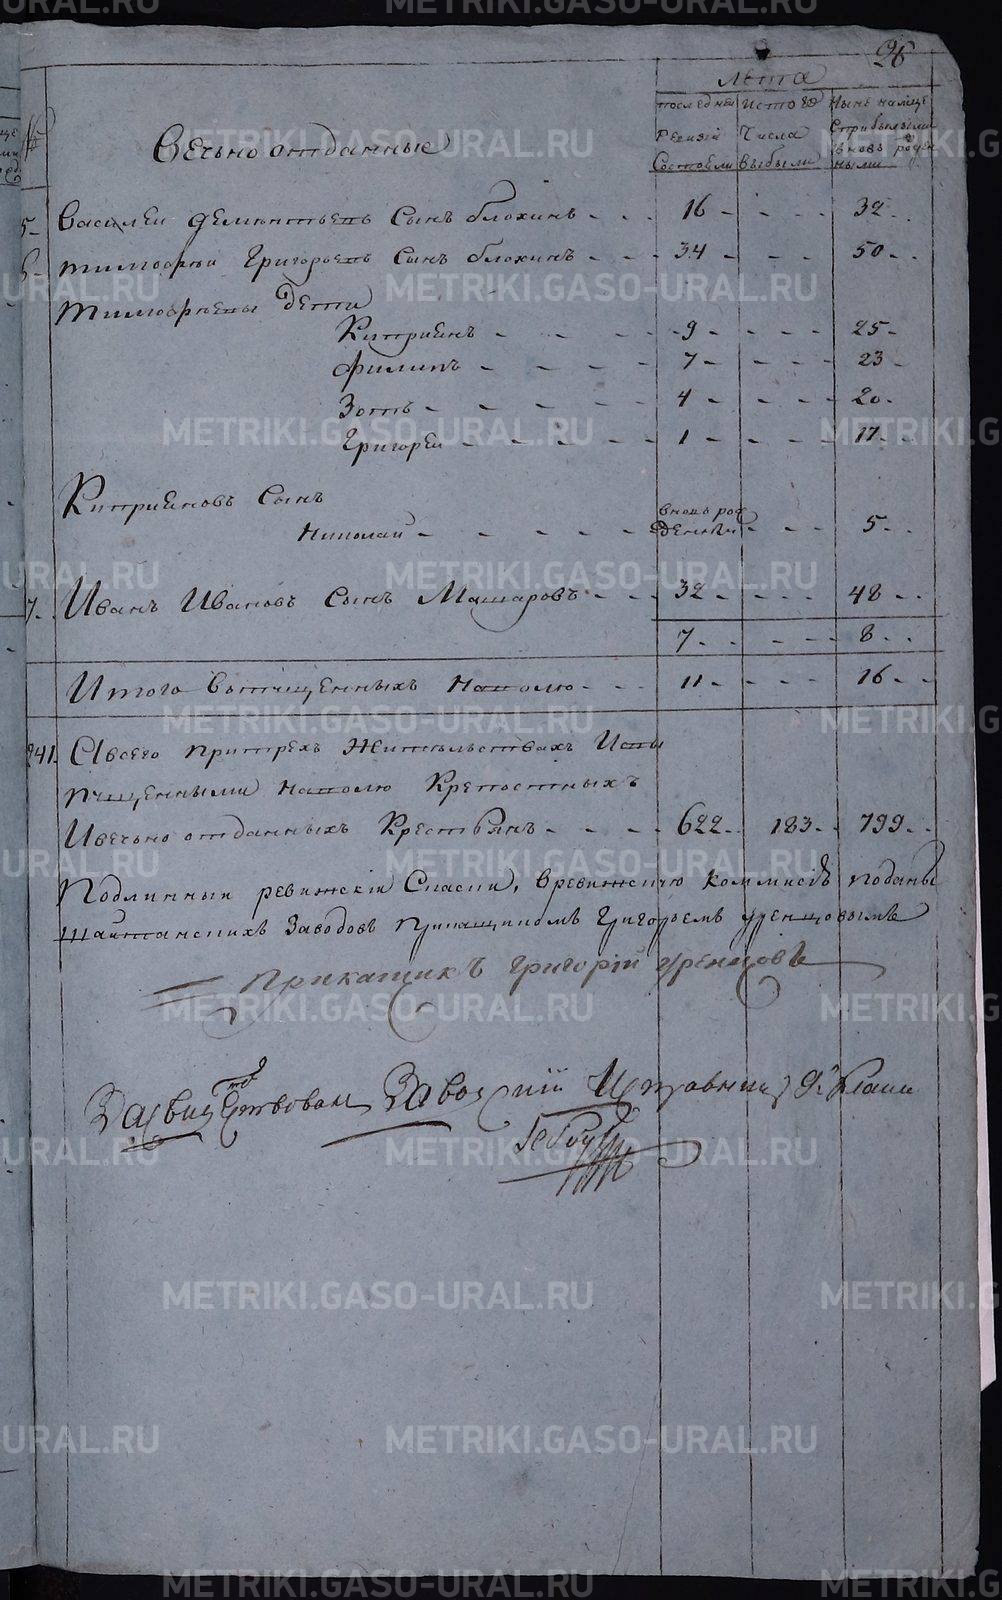 26
Лета
последней ревизии состояли
Ис того числа выбыли
Ныне налице с прибылыми и вновь рожденными
№
Вечьно отданные
5 - Василеи Дементьевъ Сынъ Блохинъ - - - 16 - - - - 32 - -
6 - Тимофеи Григорьевъ Сынъ Блохинъ - - - 34 - - - - 50 - -
Тимофеевы Дети
Киприянъ - - - - 9 - - - - 25 -
Филипъ - - - - 7 - - - - 23 -
Зотъ - - - - - 4 - - - - 20 -
Григореи - - - - - 1 - - - - 17 - -
Киприяновъ Сынъ
Николаи - - - - - вновь рожденный - - - 5 - -
7 - Иванъ Ивановъ Сынъ Машаровъ - - - 32 - - - - 48 - -
7 - - - - - 8 - -
Итого Вотпущенныхъ Наволю - - - 11 - - - - 16 - -
241. Авсего притрехъ Жительствахъ Исот
пущенными наволю Крепостныхъ
Ивечьно отданныхъ Крестьянъ - - - - 622 - - 183 - - 799 - -
Подлинныи ревижскiя Списки, вревижскую коммисiю поданы
Шайтанскихъ Заводовъ Прикащикомъ Григорьемъ Уренцовымъ
Прикащикъ Григорiй Уренцовъ
Засвидетельствовалъ Заводскiй Исправникъ
METRIKI.GASO-URAL.RU